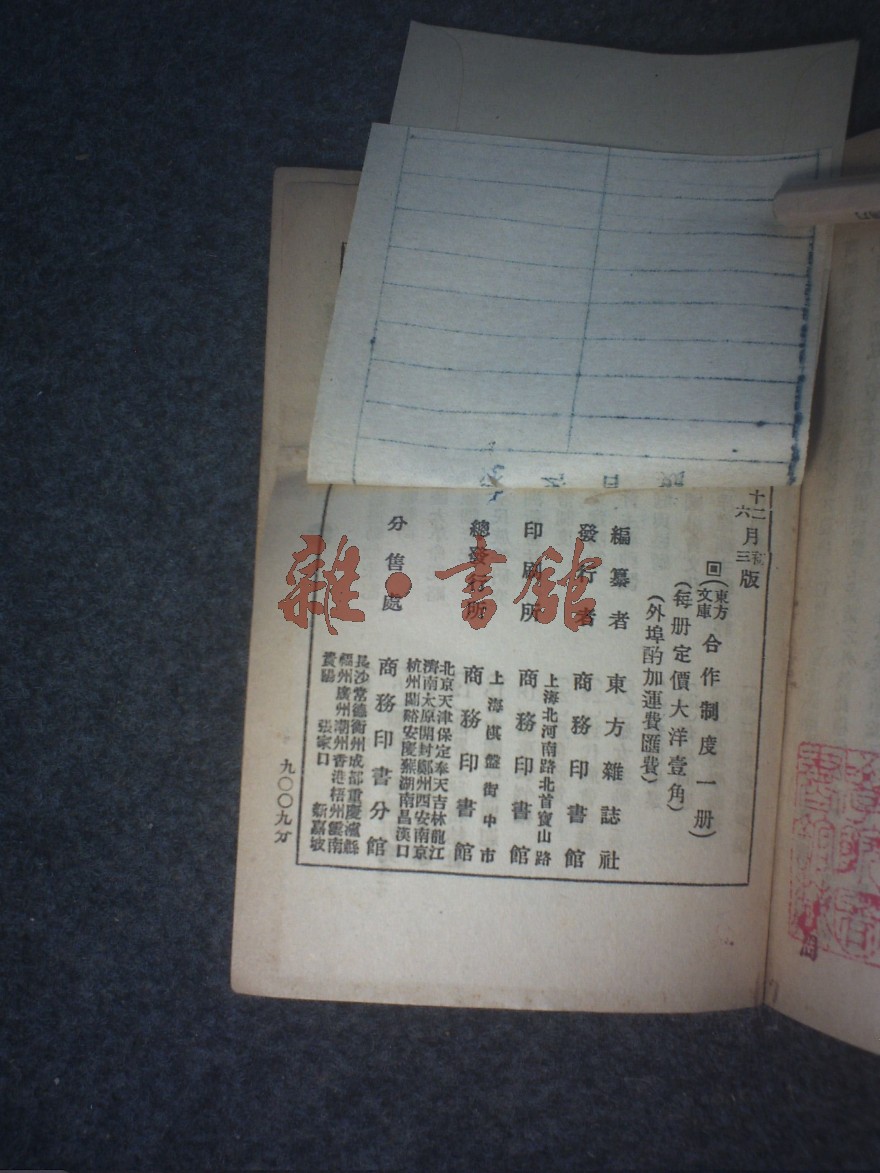 十二月初版
六 三
(東方文庫)合作制度一册)
(每册定價大洋壹角)
(外埠酌加運費匯費)
編纂者 東方雜誌社
發行者 商務印書館
上海北河南路北首寶山路
印刷所 商務印書館
上海棋盤街中市
總發行所 商務印書館
北京天津保定奉天吉林龍江
濟南太原開封鄭州西安南京
杭州蘭谿安慶蕪湖南昌漢口
分售處 商務印書分館
長沙常德衡州成都重慶瀘縣
福州廣州潮州香港梧州雲南
貴陽 張家口 新嘉坡
九〇〇九分
雜·書館